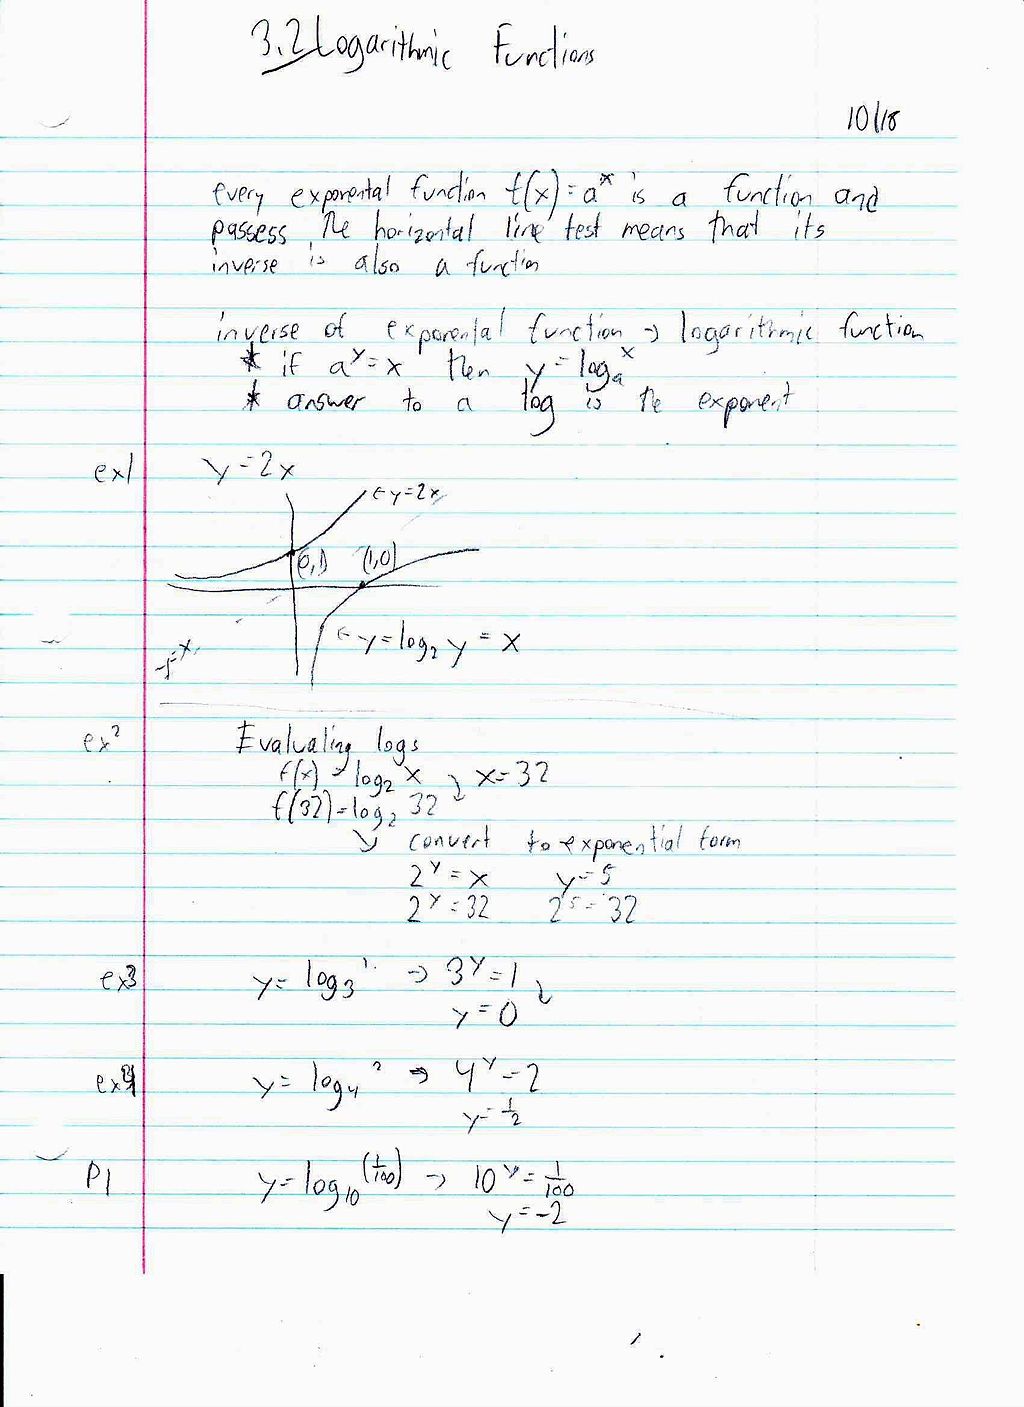 3.2 Logarithmic Functions
10/18
every exponental function f(x) = a^x is a function and
passess the horizontal line test means that its
inverse is also a function
inverse of exponental function → logarithmic function
* if a^y = x then y = log_a x
* answer to a log is the exponent
ex1 y = 2x
← y = 2x
(0,1) (1,0)
← y = log_2 y = x
y = x
ex2 Evaluating logs
f(x) = log_2 x ↘ x = 32
f(32) = log_2 32
↘ convert to exponential form
2^y = x y = 5
2^y = 32 2^5 = 32
ex3 y = log_3 1 → 3^y = 1
y = 0
ex4 y = log_4 2 → 4^y = 2
y = 1/2
P1 y = log_10 (1/100) → 10^y = 1/100
y = -2